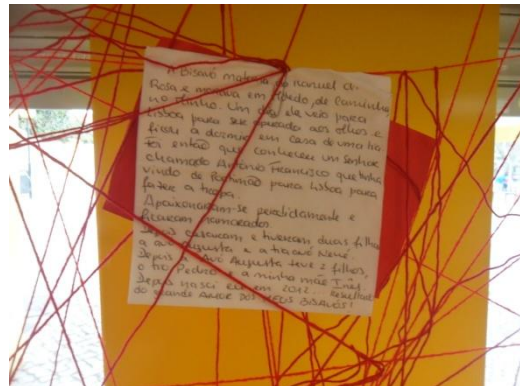 A Bisavó materna do Manuel é
Rosa e morava em , de Caminha
no Minho. Um dia ela veio para
Lisboa para ser operada aos olhos e
ficou a dormir em casa de uma tia
foi então que conheceu um senhor
chamado António Francisco que tinha
vindo de Portimão para Lisboa para
fazer a tropa.
Apaixonaram-se perdidamente e
ficaram namorados.
Depois casaram e tiveram duas filhas
a avó Augusta e a tia avó Nené.
Depois a Avó Augusta teve 2 filhos,
o tio Pedro e a minha mãe Inês.
Depois nasci eu em 2012. Resultado
do grande AMOR DOS MEUS BISAVÓS!